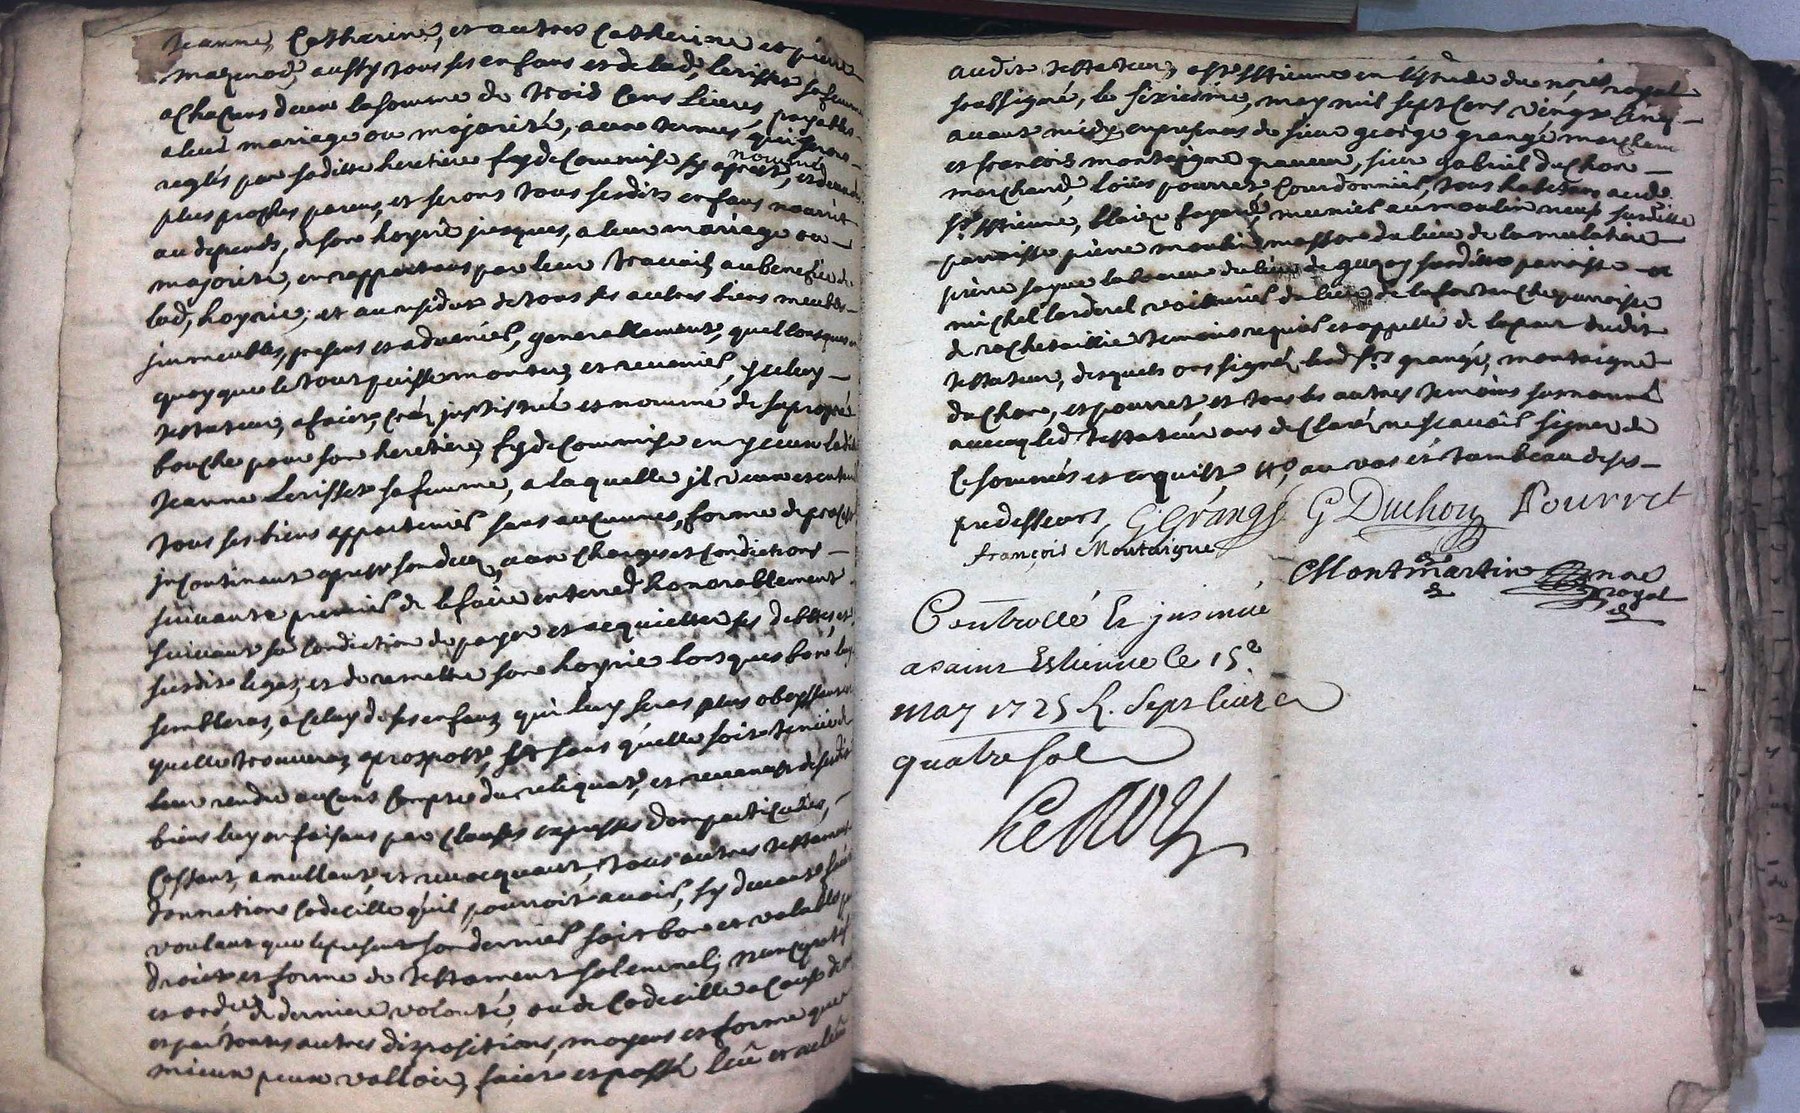 Jeanne, Catherine, et autre Catherine et pierre
aussy tous ses enfans et de lad. Lerisset sa femme
a chacuns deux la somme de trois cens livres, payables
a leur mariage ou majorité, aux termes qui seront
reglés par saditte heretiere fydecommise sy apres nommée, et de
plus proches parens, et seront tous sesdits enfans nourrit
au depends, de son hoyrie jusques, a leur mariage ou
majorité, en rapportans par leur travail au benefice de
lad. hoyrie, et au residut de tous ses autres biens meubles
immeubles, presens et advenir, generallement, quelconques
quoy que le tout puisse monter, et revenir, iceluy
testateur, a fait, créé, institué et nommé de sa propre
bouche pour son heretiere, fydecommise en
Jeanne Lerisset sa femme, a laquelle il veut et entend
tous ses biens appartenir sans aucunes, forme de procès
incontinant apres son deces, aux charges et condictions
suivante premier de le faire enterrer honorablement
suivant sa condiction de payer et acquitter ses debtes, et
susdits legats, et de remettre son hoyrie lorsque bon luy
semblera, a celuy de ses enfans qui luy sera plus obeyssant et
quelle trouvera a propost, sans quelle soit tenüe de
leur rendre aucuns compte du reliquat, et revenus desdits
biens luy en faisant par clauses expresses don particulier,
Cassant, annullant et revocquant, tous autres testament
donnations codecille quil pourroit avoir, sy devant fait
voulant que le present son dernier soit bon et valable par
droit et forme de testament solemnel, nuncupatif
et ordre de derniere volonté, ou de codecille a cause de mort
et par toutes autres dispositions, moyens et forme que
mieux peut valloir, fait et passé leu et releu
audit testateur, a St Estienne en l'étude du no.re royal
soussigné, le sixieme, may mil sept cens vingt cinq
avant midy en presences de sieur george grangé marchant
et francois montaigne graveur, sieur gabriel duchon
marchand, loüis pourret, Courdonnier, tous habitans aud.
St Estienne, blaize fayard, meunier au moulin neuf susditte
parroisse pierre moulin masson du lieu de la mulatiere
pierre faque laboureur du lieu de susditte parroisse et
michel larderel voiturier du lieu de la parroisse
de rochetaillée temoins requis et appellé de la part dudit
testateur, desquels ont signé, led. sr. grangé, montaigne
duchon, et pourret, et tous les autres temoins surnommé
avecq led testateur ont declaré ne scavoir signer de
ce sommés et enquist, au vas et tombeau de ses
predesseurs, G Grangé G Duchon Pourret
françois Montaigne
Montmartin nore
royal
Controllé & jnsinué
a saint Estienne le 15e
may 1725 R. Sept livre
quatre sol
Leroy